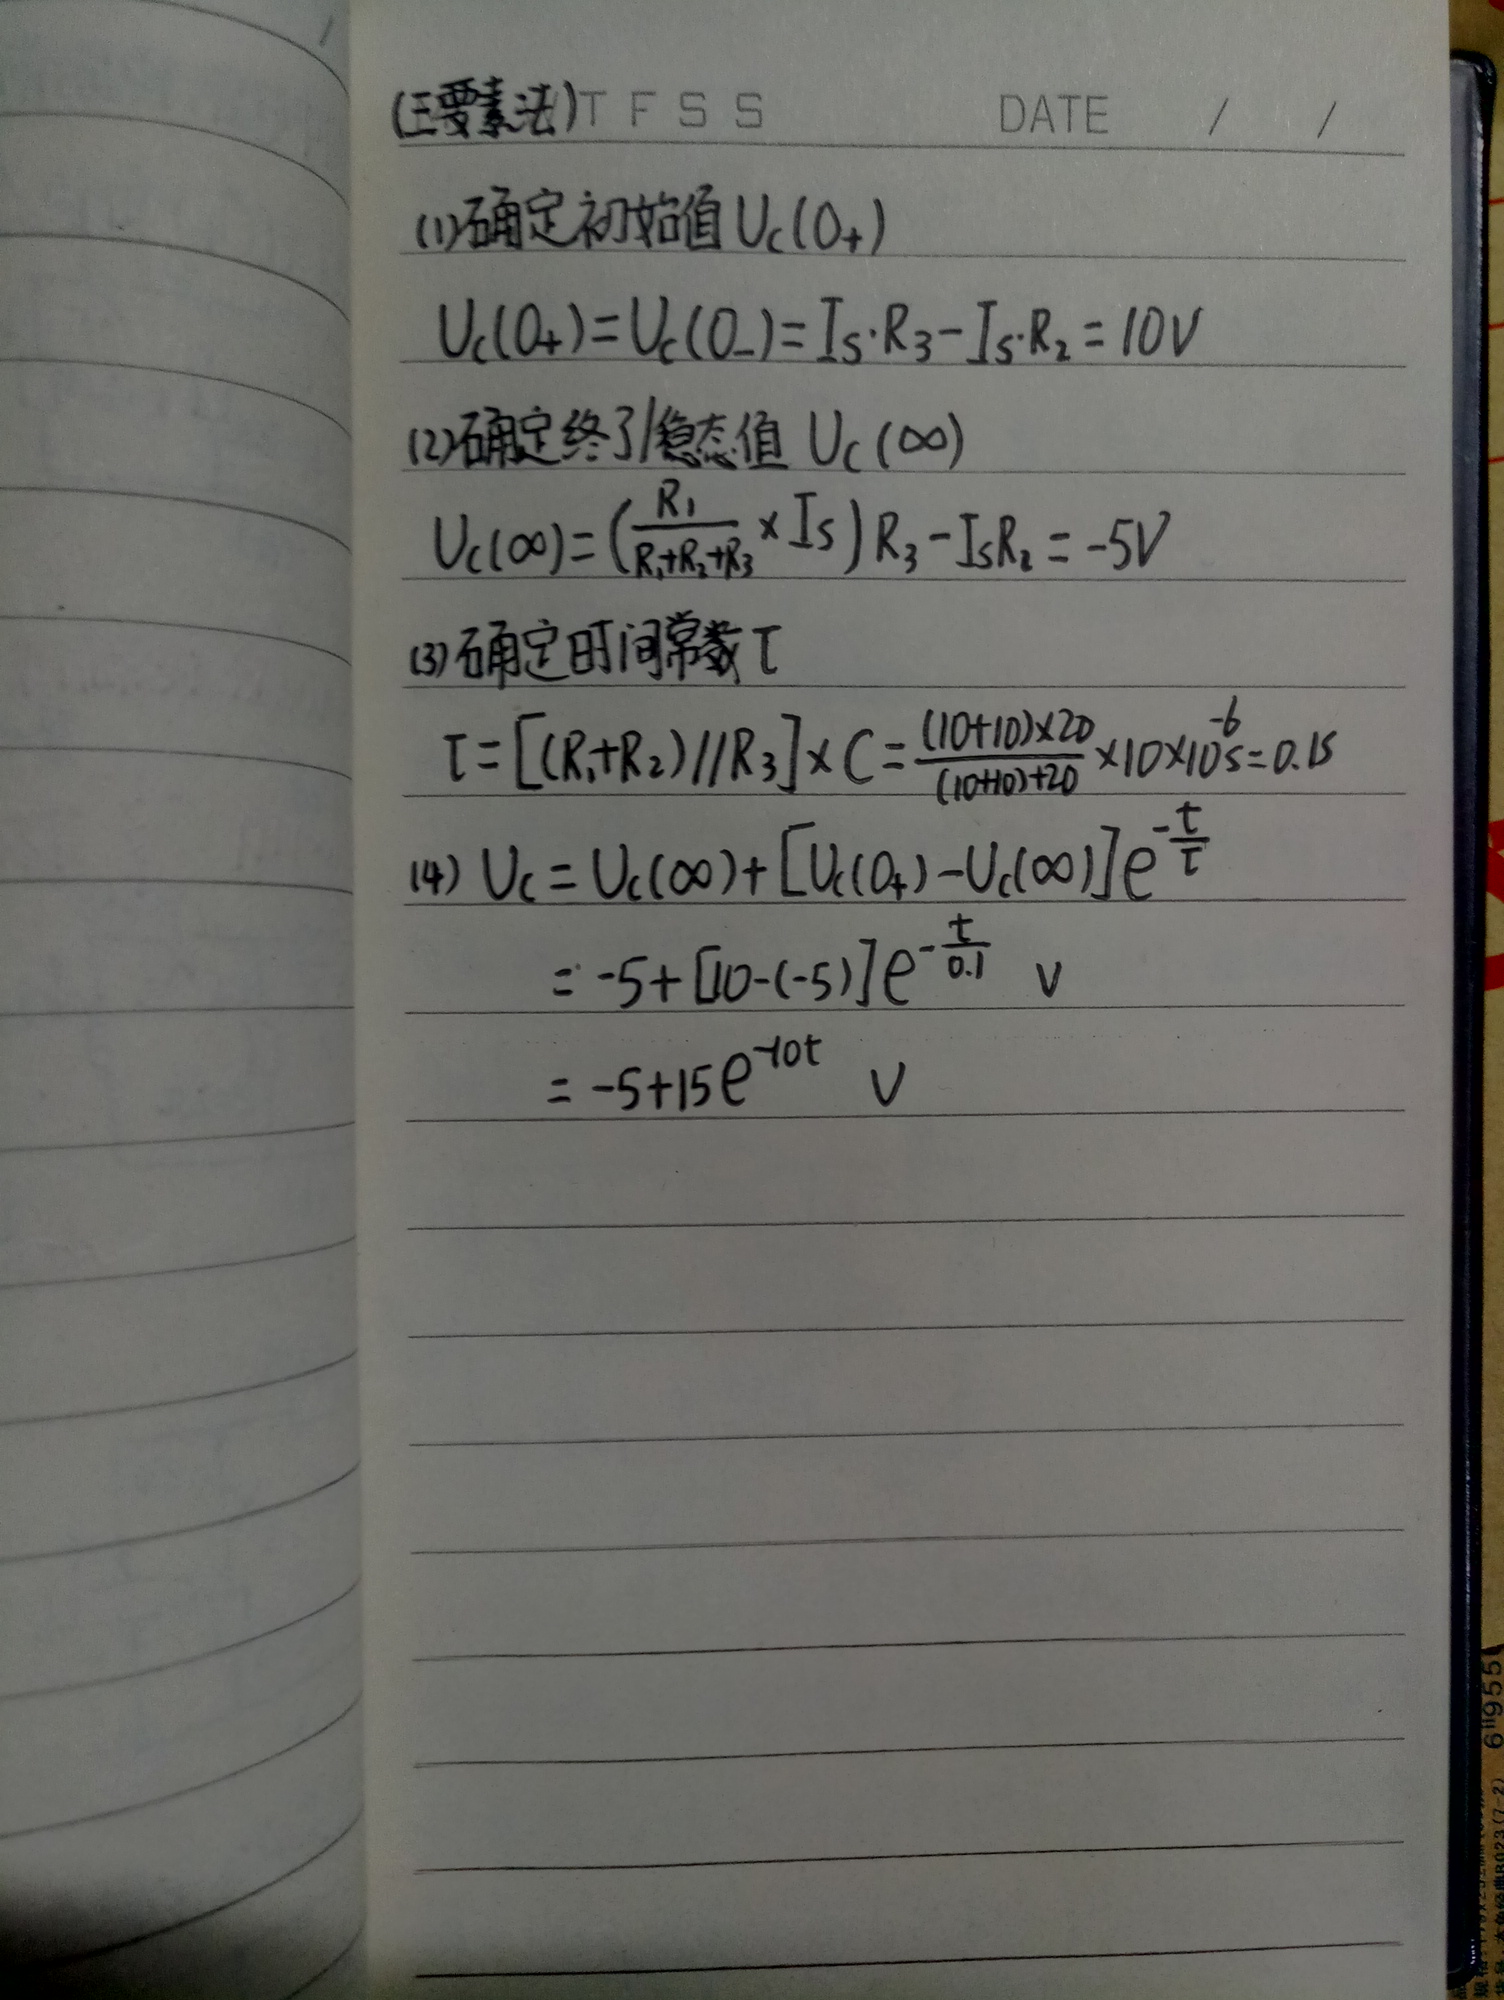 (三要素法) T F S S DATE / /
(1)确定初始值 Uc(0+)
Uc(0+)=Uc(0-)=Is·R3-Is·R2=10V
(2)确定终了/稳态值 Uc(∞)
Uc(∞)=(R1/(R1+R2+R3)×Is)R3-IsR2=-5V
(3)确定时间常数τ
τ=[(R1+R2)//R3]×C=(10+10)×20/((10+10)+20)×10×10^-6 s=0.1s
(4) Uc=Uc(∞)+[Uc(0+)-Uc(∞)]e^(-t/τ)
=-5+[10-(-5)]e^(-t/0.1) V
=-5+15e^(-10t) V
6"955